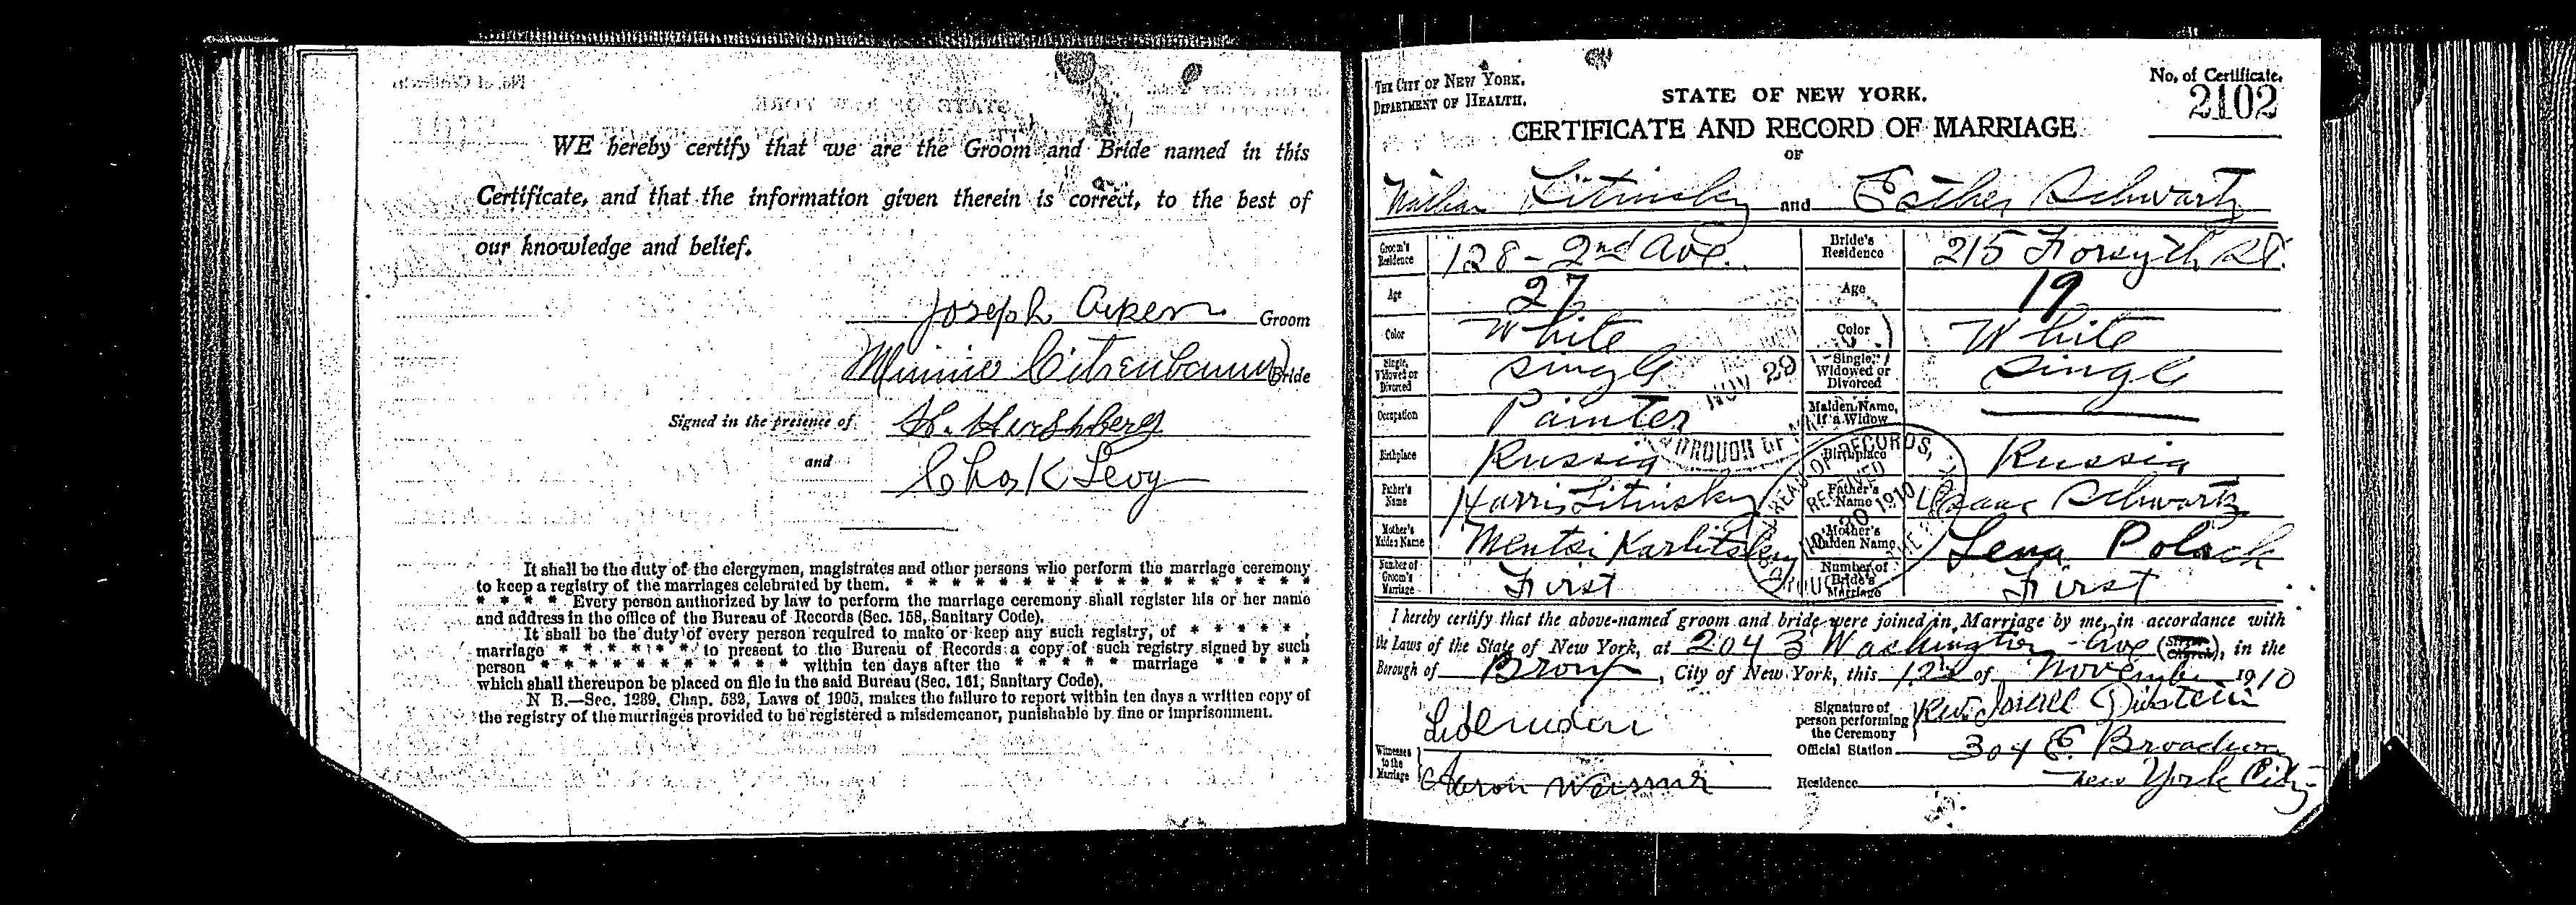 WE hereby certify that we are the Groom and Bride named in this
Certificate, and that the information given therein is correct, to the best of
our knowledge and belief.
Joseph Groom
Minnie Bride
Signed in the presence of H. Hershberg
and
Chas K Levy
It shall be the duty of the clergymen, magistrates and other persons who perform the marriage ceremony
to keep a registry of the marriages celebrated by them. * * * * * * * * * * * * * * * * * *
* * * * Every person authorized by law to perform the marriage ceremony shall register his or her name
and address in the office of the Bureau of Records (Sec. 158, Sanitary Code).
It shall be the duty of every person required to make or keep any such registry, of * * * * *
marriage * * * * * * to present to the Bureau of Records a copy of such registry signed by such
person * * * * * * * * * * * within ten days after the * * * * * marriage * * * * *
which shall thereupon be placed on file in the said Bureau (Sec. 161, Sanitary Code).
N B.—Sec. 1239, Chap. 532, Laws of 1905, makes the failure to report within ten days a written copy of
the registry of the marriages provided to be registered a misdemeanor, punishable by fine or imprisonment.
THE CITY OF NEW YORK.
DEPARTMENT OF HEALTH.
No. of Certificate.
2102
STATE OF NEW YORK.
CERTIFICATE AND RECORD OF MARRIAGE
OF
Nathan Litinsky and Esther Schwartz
Groom's Residence 128 - 2nd Ave. Bride's Residence 215 Forsyth St.
Age 27 Age 19
Color White Color White
Single, Widowed or Divorced Single Single, Widowed or Divorced Single
Occupation Painter Maiden Name, if a Widow
Birthplace Russia Birthplace Russia
Father's Name Harris Litinsky Father's Name Isaac Schwartz
Mother's Maiden Name Mentsi Karlitsky Mother's Maiden Name Lena Polack
Number of Groom's Marriage First Number of Bride's Marriage First
NOV 29
BOROUGH OF
BUREAU OF RECORDS,
RECEIVED
NOV 30 1910
I hereby certify that the above-named groom and bride were joined in Marriage by me, in accordance with
the Laws of the State of New York, at 2043 Washington Ave (Street Church), in the
Borough of Bronx, City of New York, this 12 of November 1910
Signature of person performing the Ceremony Rev. Israel
Official Station 304 E. Broadway
Witnesses to the Marriage
Residence New York City